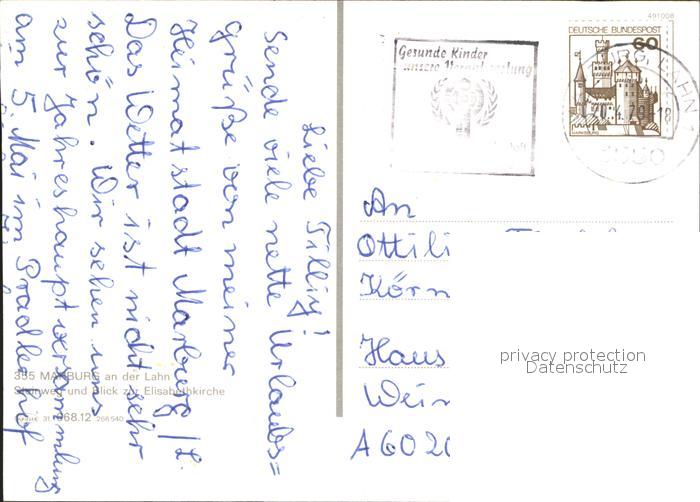 Liebe Tilly!
Sende viele nette Urlaubs=
grüße von meiner
Heimatstadt Marburg/L.
Das Wetter ist nicht sehr
schön. Wir sehen uns
zur Jahreshauptversammlung
am 5. Mai im Pradler Hof
355 MARBURG an der Lahn
Steinweg und Blick zur Elisabethkirche
68.12 266540
491008
Gesunde Kinder
unsere
DEUTSCHE BUNDESPOST
60
MARKSBURG
LAHN
An
Ottili
Körn
Haus
Wein
A 602
privacy protection
Datenschutz